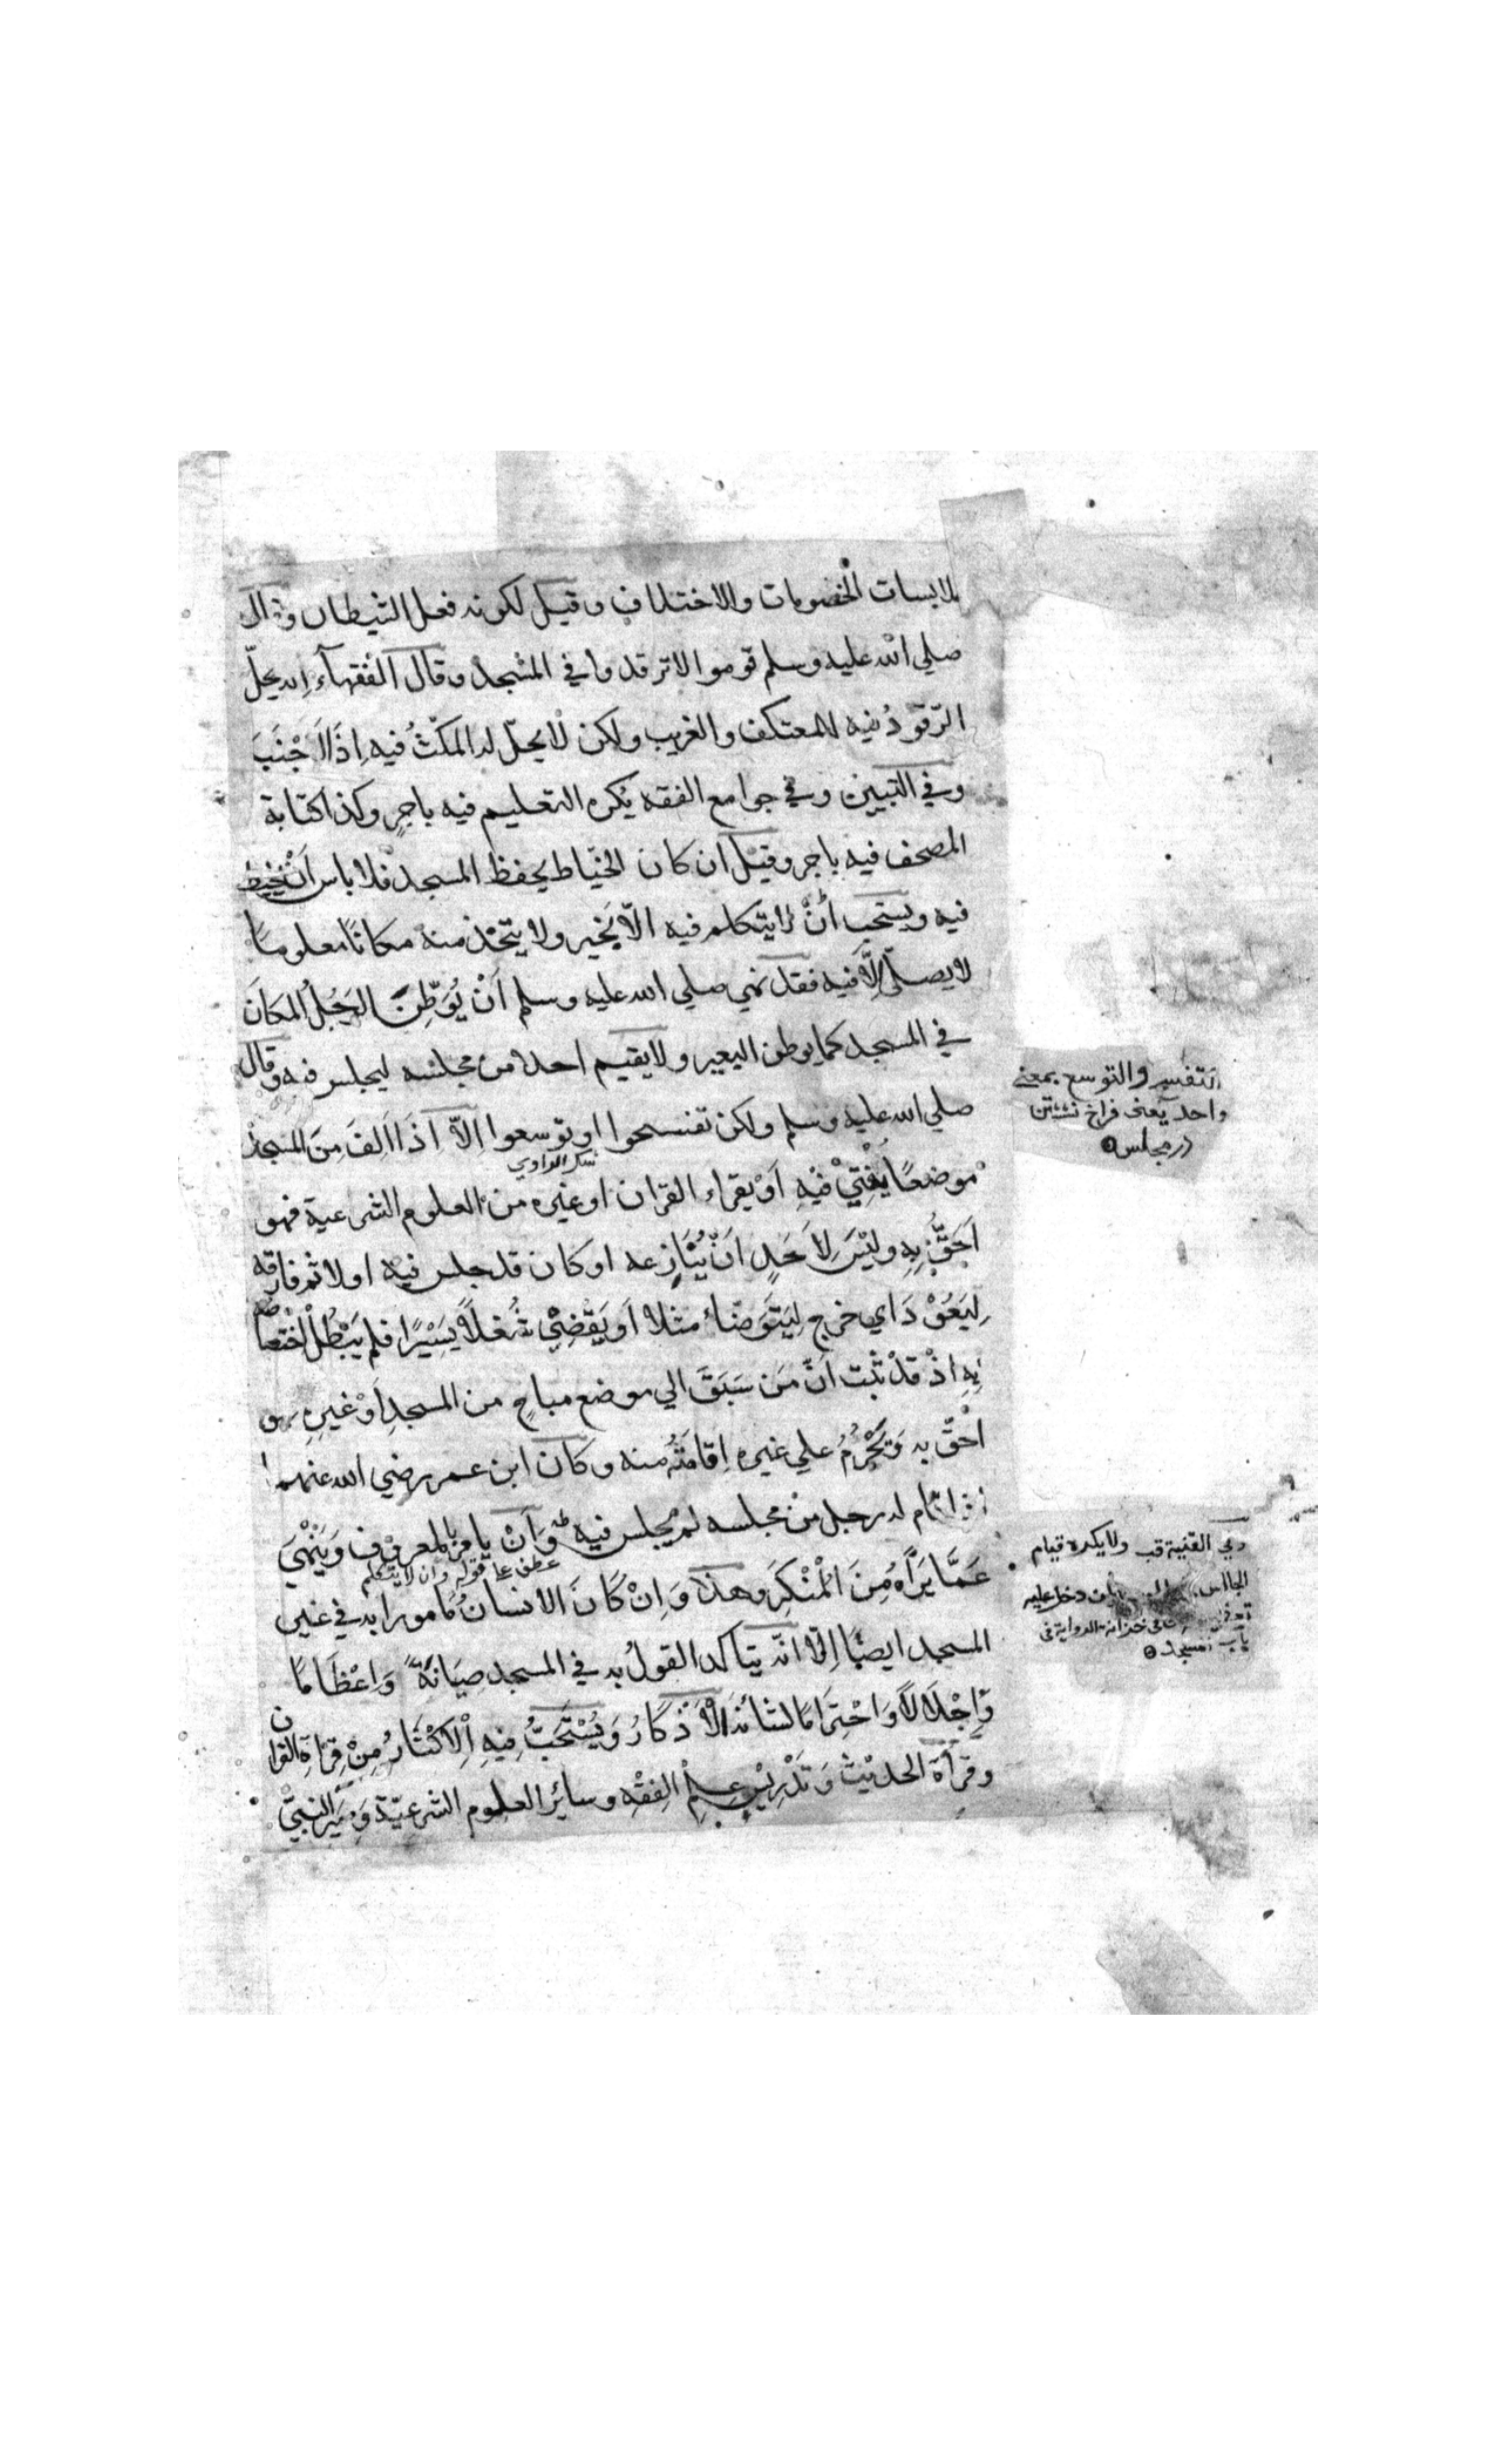 لملابسات الخصومات والاختلاف وقيل لكونه فعل الشيطان وقال
صلي الله عليه وسلم قوموا لا ترقدوا في المسجد وقال الفقهآء انه يحلّ
الرّقودُ فيه للمعتكف والغريب ولكن لا يحلّ له المكثُ فيه اِذَا اَجْنَبَ
وفي التبيين وفي جوامع الفقه يكره التعليم فيه باجرٍ وكذا كتابة
المصحف فيه باجر وقيل ان كان الخيّاط يحفظ المسجد فلا باس اَنْ يخيط
فيه ويستحب اَنْ لا يتكلم فيه الّا بخير ولا يتّخذ منه مكانًا معلومًا
لا يصلّي اِلَّا فيه فقد نهي صلي الله عليه وسلم اَنْ يُوَطِّنَ الرَجُلُ المكانَ
في المسجد كما يوطن البعير ولا يقيم احدا من مجلسه ليجلس فيه وقال
صلي الله عليه وسلم ولكن تفسحوا او توسعوا اِلّا اذا اَلِفَ مِنَ المسجد
شك الراوي
موضعًا يُفْتِيْ فيْهِ اَوْ يقراء القران او غيره من العلوم الشرعية فهو
اَحَقُّ بِهِ وليْسَ لِاَحَدٍ اَنْ يُنَازِعه او كان قد جلس فيه اولا ثم فارقه
لِيَعُوْدَ اي خرج لِيَتَوَضّاء مثلا اَو يَقْضِيْ شُغلًا يَسِيْرًا فلم يَبْطُل اختصاصه
بِهِ اذْ قَدْ ثبت اَنّ مَن سَبَقَ الي موضع مباحٍ من المسجدِ اَوْ غيرِهِ فهو
احقّ به وَيَحْرُمُ علي غيره اِقامَتُهُ منه وكان ابن عمر رضي الله عنهما
اذا قام له رجل منْ مجلسه لم يجلس فيه وَاَنْ يامرَ بالمعروْف وَيَنْهٰيَ
عطف علي قوله وان لا يتكلم
عَمَّا يَرَاهُ مِنَ الْمُنْكَرِ وهذا وَاِنْ كَانَ الانسانُ مامورا به في غير
المسجد ايضًا اِلّا انّه يتاكد القولُ به في المسجد صِيَانَةً وَاِعْظَامًا
وَّاِجْلَالًا وَاحْتِرَامًا لشانه الْاَذْكَارُ وَيُسْتَحَبُّ فِيهِ اْلِاكْثَارُ مِنْ قِرَاءَةِ القران
وقرأة الحديْث وَتَدْرِيْسِ عِلمِ الفِقْهِ وسائر العلوم الشرعيّة وَسِيَرِ النبيّ
التفسح والتوسع بمعني
واحد يعنى فراخ نشستن
در مجلس
وفي القنية قب ولا يكره قيام
الجالس دخل عليه
في خزانة الرواية في
باب المسجد